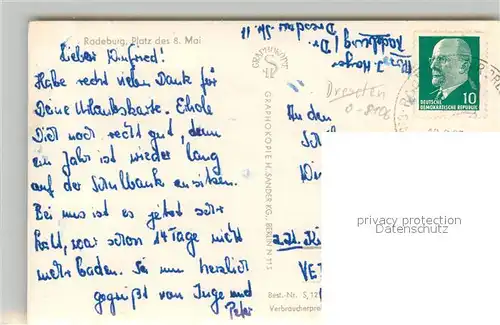 Radeburg, Platz des 8. Mai
Lieber Winfried!
Habe recht vielen Dank für
Deine Urlaubskarte. Erhole
Dich noch recht gut, denn
ein Jahr ist wieder lang
auf der Schulbank
Bei uns ist es jetzt sehr
kalt, war schon 14 Tage nicht
mehr baden. Sei nun herzlich
gegrüßt von Inge und
Peter
GRAPHOKOPIE
GRAPHOKOPIE H. SANDER KG., BERLIN N 113
Radeburg / Dr.
Dresdner Str. 11
10
DEUTSCHE
DEMOKRATISCHE REPUBLIK
Dresden
O-8106
An den
privacy protection
Datenschutz
Best.-Nr. S, 12
Verbraucherpre